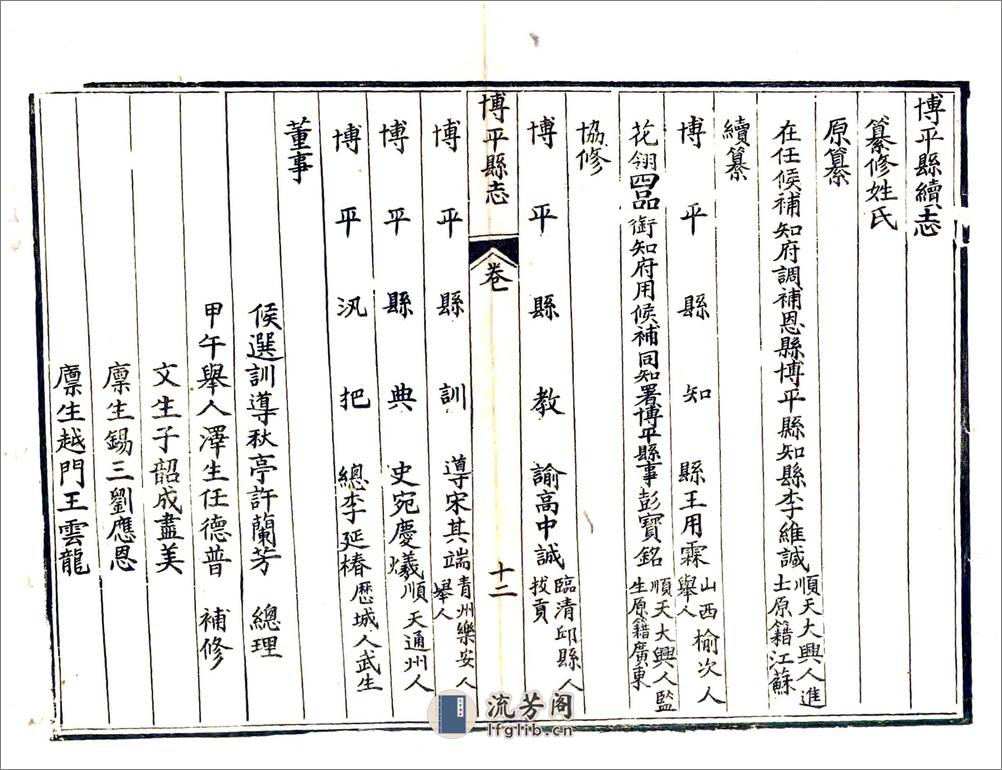 博平縣續志
纂修姓氏
原纂
在任候補知府調補恩縣博平縣知縣李維諴順天大興人進士原籍江蘇
續纂
博平縣知縣王用霖山西榆次人舉人
花翎四品銜知府用候補同知署博平縣事彭寶銘順天大興人監生原籍廣東
協修
博平縣教諭高中誠臨清邱縣人拔貢
博平縣志 卷 十二
博平縣訓導宋其端青州樂安人舉人
博平縣典史宛慶㸌順天通州人
博平汛把總李延椿歷城人武生
董事
候選訓導秋亭許蘭芳 總理
甲午舉人澤生任德普 補修
文生子韶成盡美
廩生錫三劉應恩
廩生越門王雲龍
流芳阁
lfglib.cn